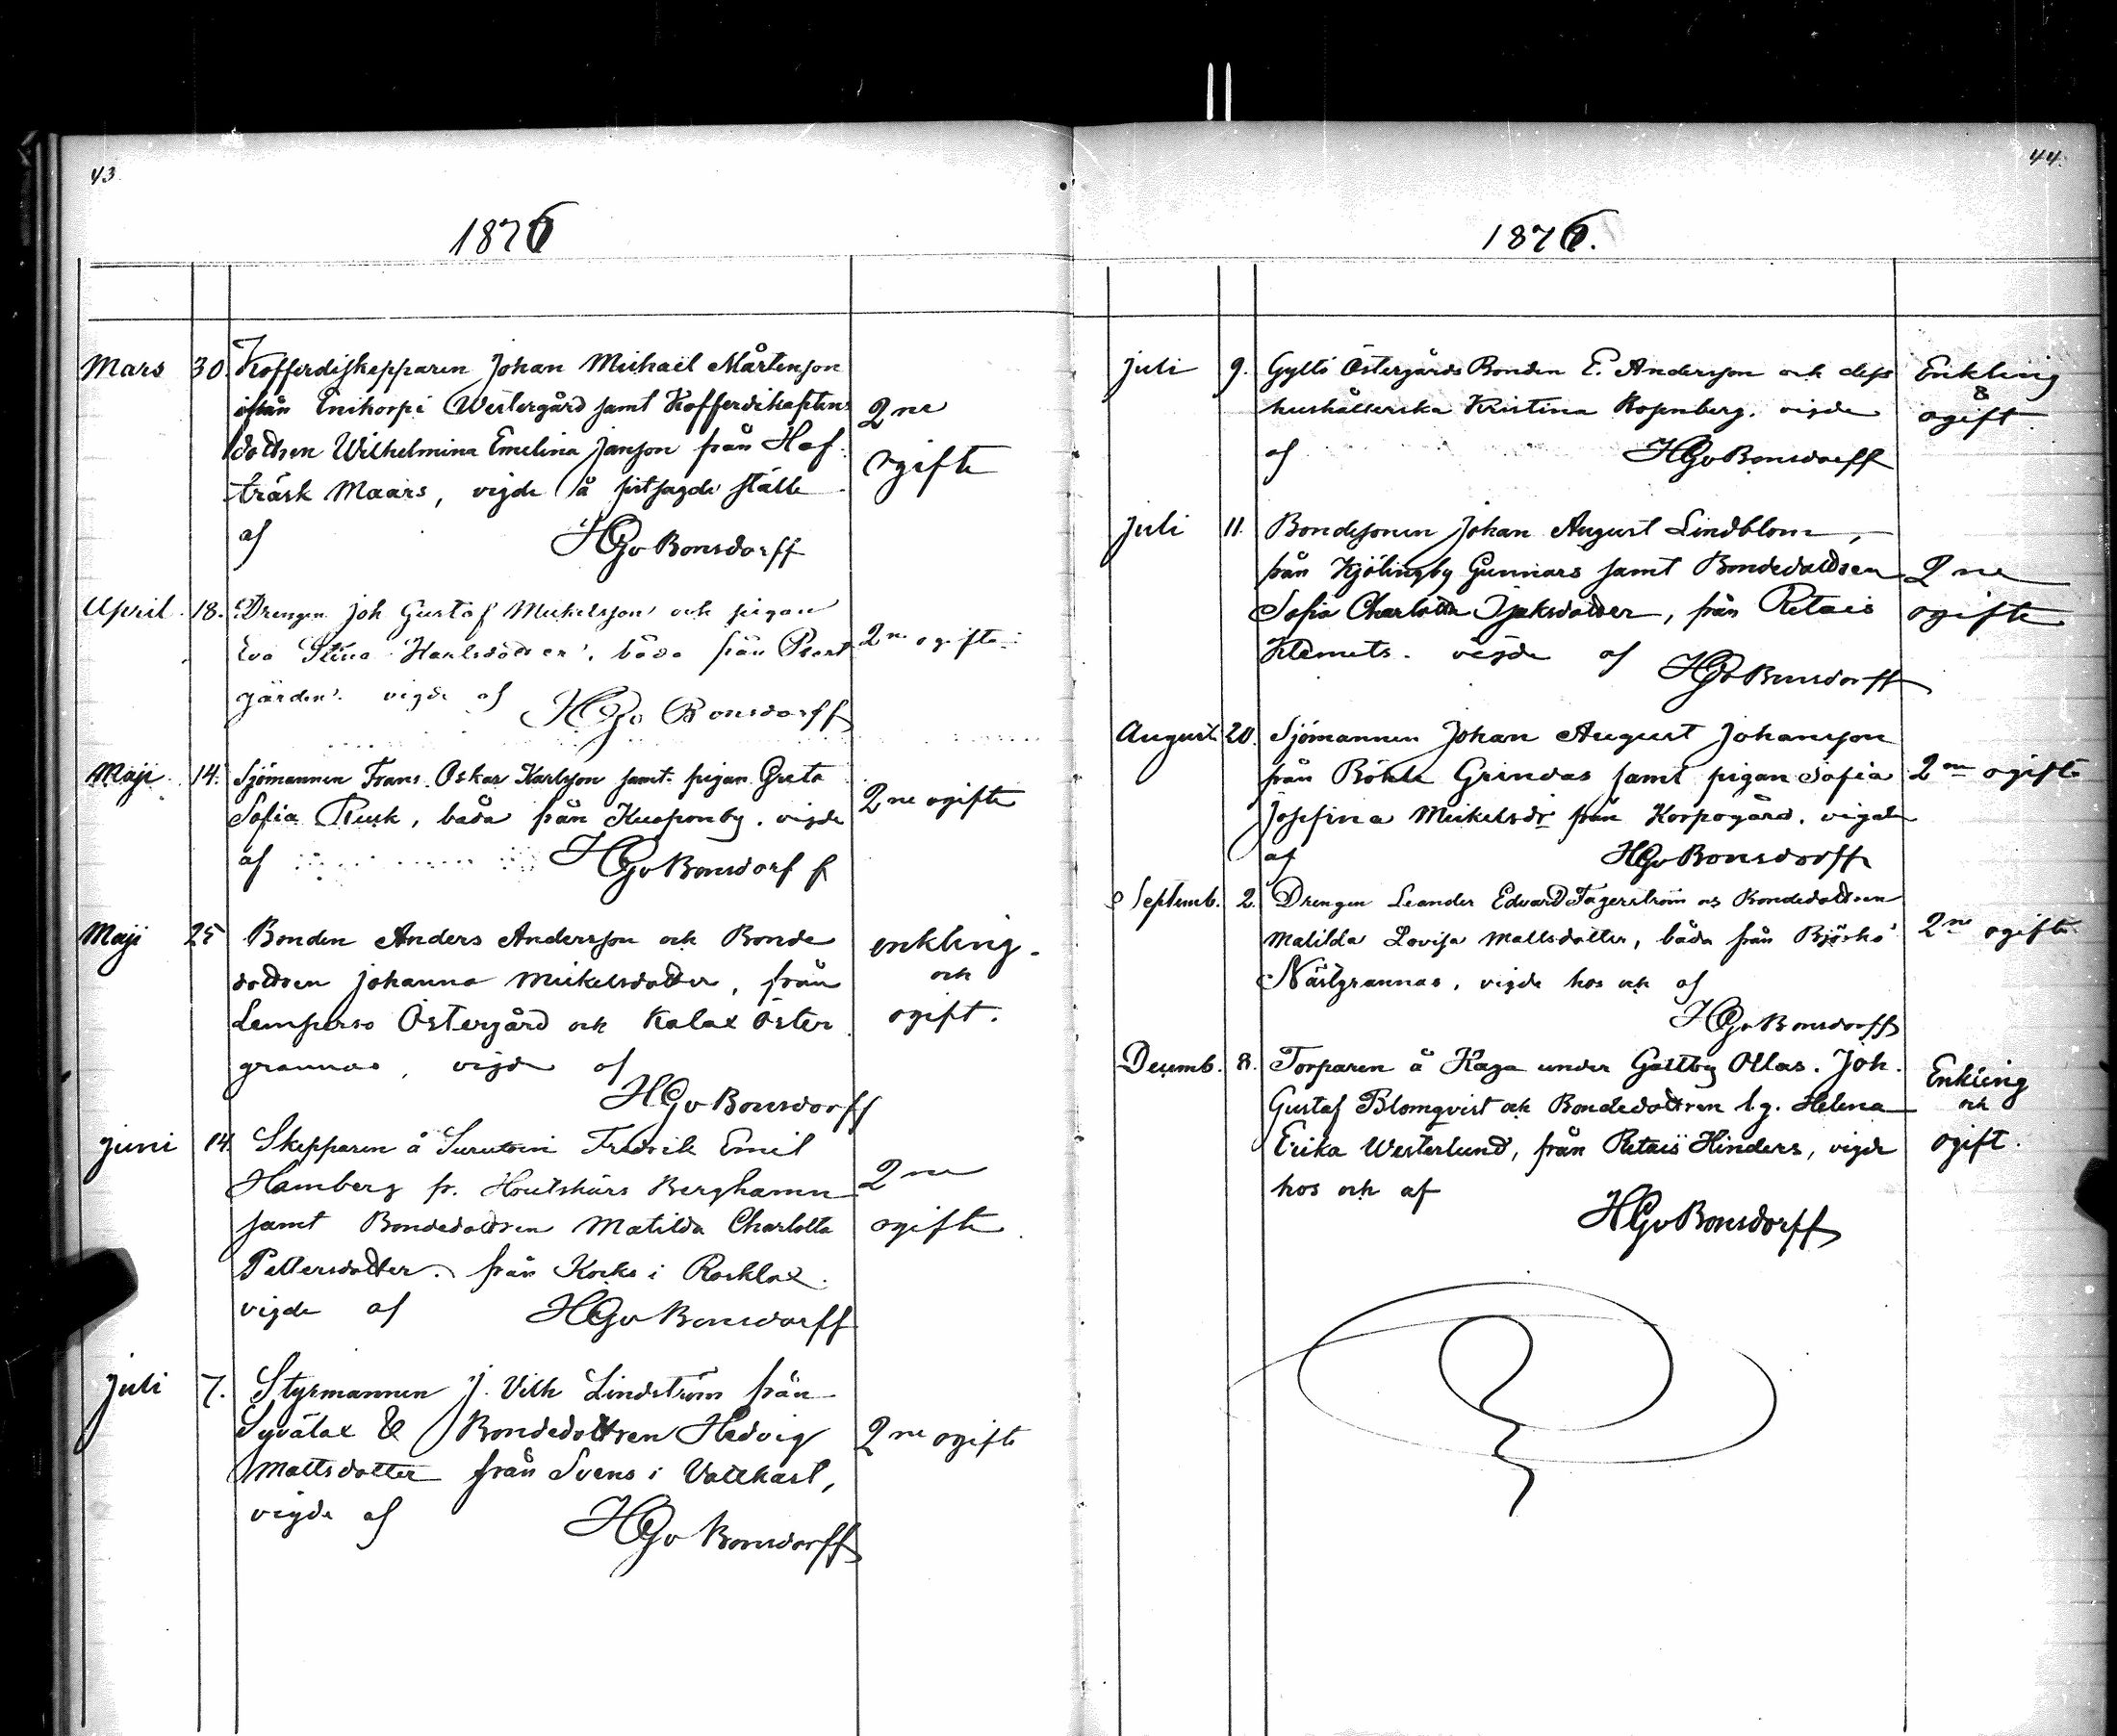 43
1876
Mars 30. Kofferdiskepparen Johan Michaël Mårtenson
ifrån Enikorpi Westergård samt Kofferdikaptens
dottren Wilhelmina Emelina Janson från Haf-
träsk Maars, vigde å sistsagde ställe
2ne
ogifte
af HGvBonsdorff
April 18. Drengen Joh Gustaf Mickelsson och pigan
Eva Stina Karlsdotter, båda från Prest
gården. vigde af HGvBonsdorff
2ne ogifte
Maji 14. Sjömannen Frans Oskar Karlsson samt pigan Greta
Sofia Rusk, båda från Kuoponby. vigde
af HGvBonsdorff
2ne ogifte
Maji 25 Bonden Anders Andersson och Bonde
dottren Johanna Mickelsdotter, från
Lempersö Östergård och Kalax Öster
grannas, vigde af
HGvBonsdorff
enkling
och
ogift.
Juni 14. Skepparen å Suruton Fredrik Emil
Hamberg fr. Houtskärs Berghamn
samt Bondedottren Matilda Charlotta
Pettersdotter. från Kocks i Rocklax.
vigde af HGvBonsdorff
2ne
ogifte
Juli 7. Styrmannen J. Vilh Lindström från
Syvälax & Bondedottren Hedvig
Mattsdotter från Svens i Vattkast,
vigde af HGvBonsdorff
2ne ogifte
44.
1876.
Juli 9. Gyltö Östergårds Bonden E. Andersson och dess
hushållerska Kristina Rosenberg. vigde
af HGvBonsdorff
Enkling
&
ogift
Juli 11. Bondesonen Johan August Lindblom,
från Kjölingby Gunnars samt Bondedottren
Sofia Charlotta Isaksdotter, från Retais
Klemets. vigde af HGvBonsdorff
2ne
ogifte
August 20. Sjömannen Johan August Johansson
från Rökle Grindas samt pigan Sofia
Josefina Mickelsdr från Korpogård. vigde
af HGvBonsdorff
2ne ogifte
Septemb. 2. Drengen Leander Edvard Fagerström os Bondedottren
Matilda Lovisa Mattsdotter, båda från Björkö
Nästgrannas, vigde hos och af
HGvBonsdorff
2ne ogifte
Decemb. 8. Torparen å Haga under Galtby Ollas. Joh.
Gustaf Blomqvist och Bondedottren l.g. Helena
Erika Westerlund, från Retais Hinders, vigde
hos och af
HGvBonsdorff
Enkling
och
ogift.